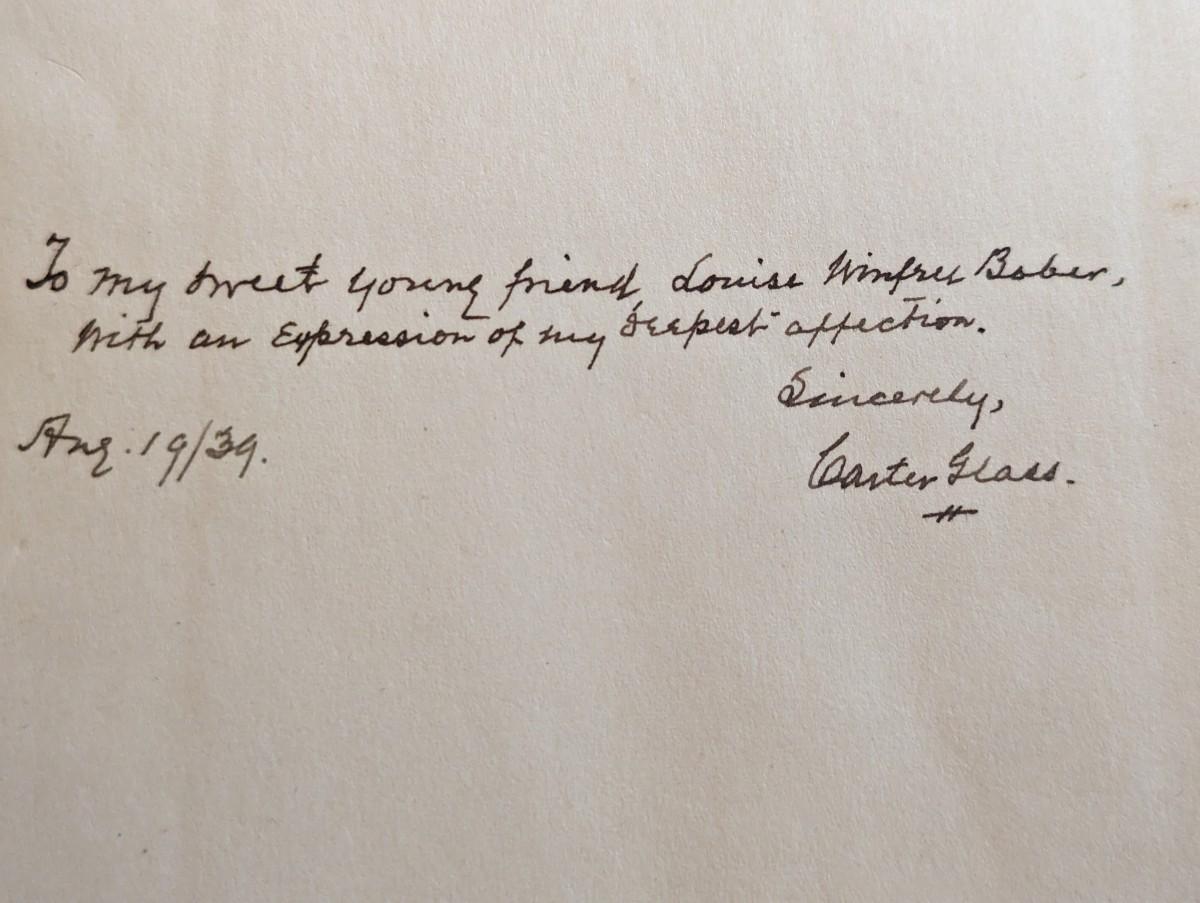 To my sweet young friend, Louise Winfree Baber,
With an Expression of my deepest affection.
Sincerely,
Aug. 19/39.
Carter Glass.